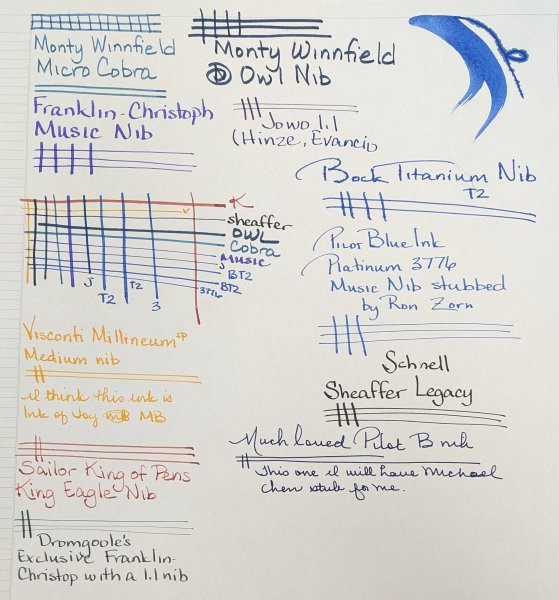 Monty Winnfield
Micro Cobra
Monty Winnfield
Owl Nib
Franklin-Christoph
Music Nib
Jowo 1.1
(Hinze, Evancio
Bock Titanium Nib
T2
K
V
Sheaffer
OWL
Cobra
Music
J
BT2
BT2
3776
J
T2
T2
3
Pilot Blue Ink
Platinum 3776
Music Nib stubbed
by Ron Zorn
Visconti Millineum SP
Medium nib
I think this ink is
Ink of Joy MB
Schnell
Sheaffer Legacy
Much loved Pilot B nib
This one I will have Michael
Chen stub for me.
Sailor King of Pens
King Eagle Nib
Dromgoole's
Exclusive Franklin-
Christop with a 1.1 nib